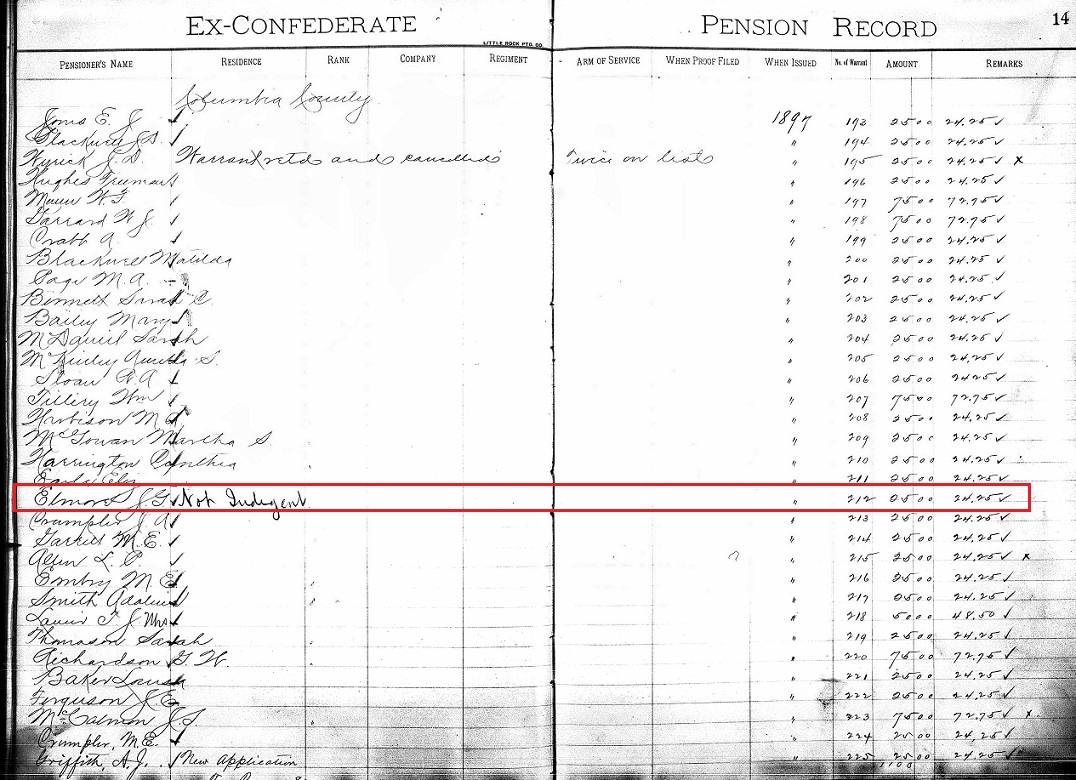 EX-CONFEDERATE PENSION RECORD 14
LITTLE ROCK PTG. CO.
PENSIONER'S NAME RESIDENCE RANK COMPANY REGIMENT ARM OF SERVICE WHEN PROOF FILED WHEN ISSUED No. of Warrant AMOUNT REMARKS
Columbia County
Jones E. J. ✓ 1897 193 25 00 24.25 ✓
Blackwell J. S. ✓ " 194 25 00 24.25 ✓
Wyrick J. D. Warrant retd and cancelled Twice on list " 195 25 00 24.25 ✓ x
Hughes Freeman " 196 25 00 24.25 ✓
W. F. ✓ " 197 75 00 72.75 ✓
Garrard W. J. ✓ " 198 75 00 72.75 ✓
Crabb A. ✓ " 199 25 00 24.25 ✓
Blackwell Matilda " 200 25 00 24.25 ✓
Page M. A. " 201 25 00 24.25 ✓
Bennett Sarah C. " 202 25 00 24.25 ✓
Bailey Mary ✓ " 203 25 00 24.25 ✓
McDaniel Sarah " 204 25 00 24.25 ✓
McKinley S. " 205 25 00 24.25 ✓
Sloan W. A. ✓ " 206 25 00 24.25 ✓
Tillery Wm ✓ " 207 75 00 72.75 ✓
Harbison M. " 208 25 00 24.25 ✓
McGowan Martha S. " 209 25 00 24.25 ✓
Harrington Cynthia " 210 25 00 24.25 ✓
Early Eliz " 211 25 00 24.25 ✓
Elmore J. G. ✓ Not Indigent " 212 25 00 24.25 ✓
Crumpler J. A. " 213 25 00 24.25 ✓
Garrett M. E. ✓ " 214 25 00 24.25 ✓
Allen L. P. ✓ " 215 25 00 24.25 ✓ x
Embry M. E. " 216 25 00 24.25 ✓
Smith " 217 25 00 24.25 ✓
J. Mrs ✓ " 218 50 00 48.50 ✓
Thomason Sarah " 219 25 00 24.25 ✓
Richardson G. W. " 220 75 00 72.75 ✓
Baker Louisa " 221 25 00 24.25 ✓
Ferguson J. E. " 222 25 00 24.25 ✓
McCalmon J. S. " 223 75 00 72.75 ✓ x
Crumpler, M. E. ✓ " 224 25 00 24.25 ✓
Griffith, A. J. ✓ New Application 225 25 00 24.25 ✓
1100